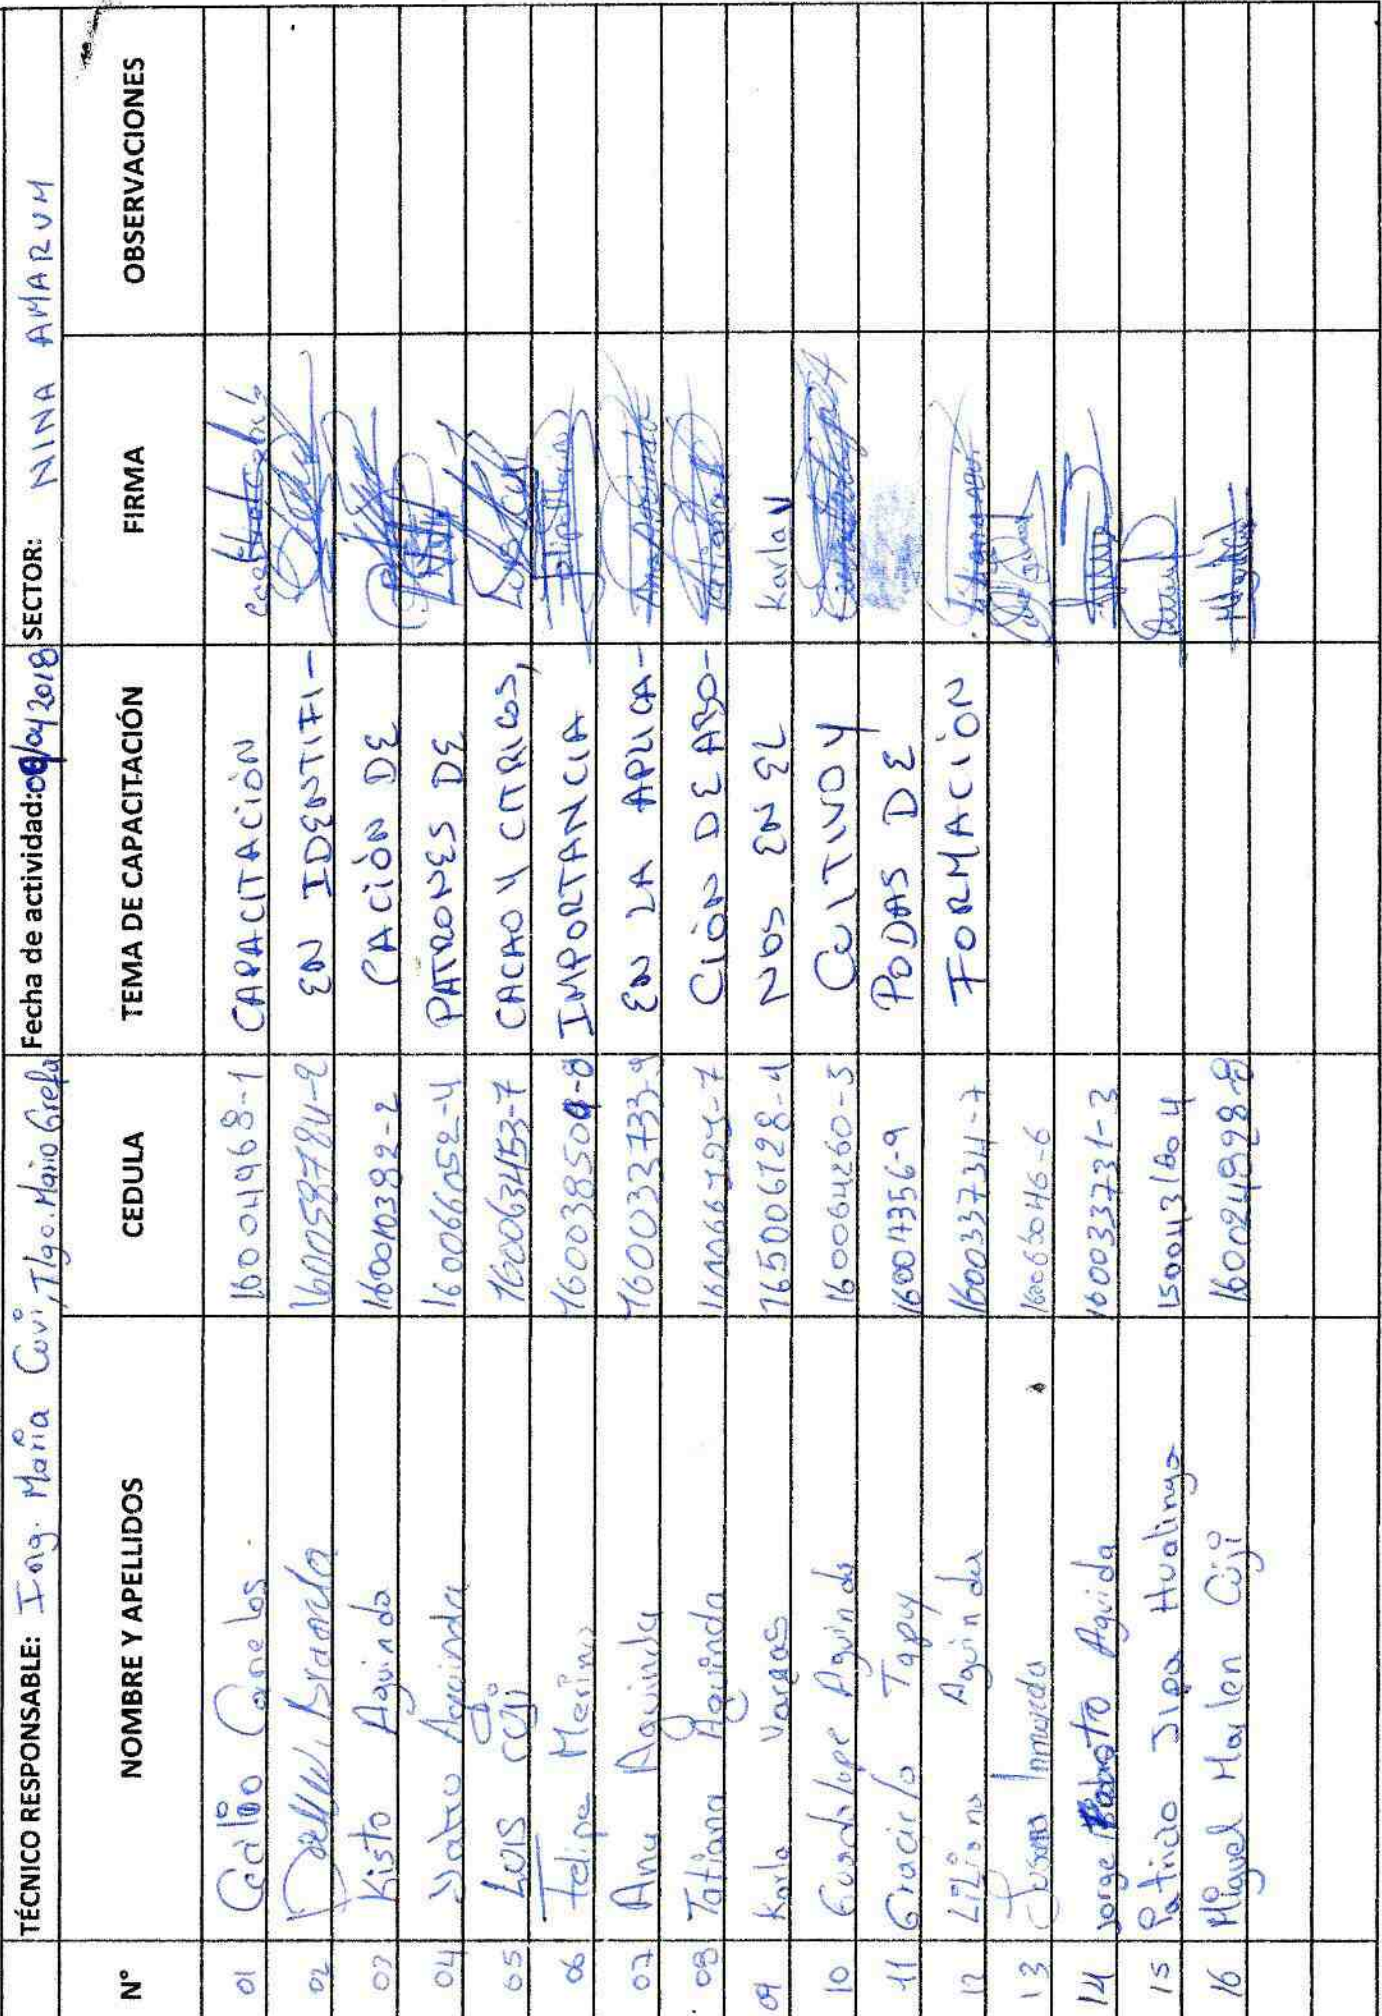 TÉCNICO RESPONSABLE: Ing. Maria Cuvi, Tlgo. Mario Grefa Fecha de actividad: 04 2018 SECTOR: NINA AMARUM
N° NOMBRE Y APELLIDOS CEDULA TEMA DE CAPACITACIÓN FIRMA OBSERVACIONES
01 Cecilio Canelos. 160041968-1 CAPACITACIÓN
02 160058784-2 EN IDENTIFI-
03 Kisto Aguinda CACIÓN DE
04 Aguinda 160066052-4 PATRONES DE
05 LUIS CUJI 160063453-7 CACAO Y CITRICOS, Luis Cuji
06 Felipe Merino IMPORTANCIA Felipe Merino
07 Ana Aguinda 160033733-9 EN LA APLICA- Ana Aguinda
08 Tatiana Aguinda CIÓN DE ABO- Tatiana
09 Karla Vargas 165006128-4 NOS EN EL Karla V
10 Guadalupe Aguinda 160064260-5 CULTIVO Y
11 Graciela Tapuy 160017356-9 PODAS DE
12 Liliana Aguinda 160033734-7 FORMACIÓN
13 Susana 160065046-6
14 Jorge Aguida 160033731-3
15 Patricio Jipa Hualinga
16 Miguel Marlen Cuji 160024898-8